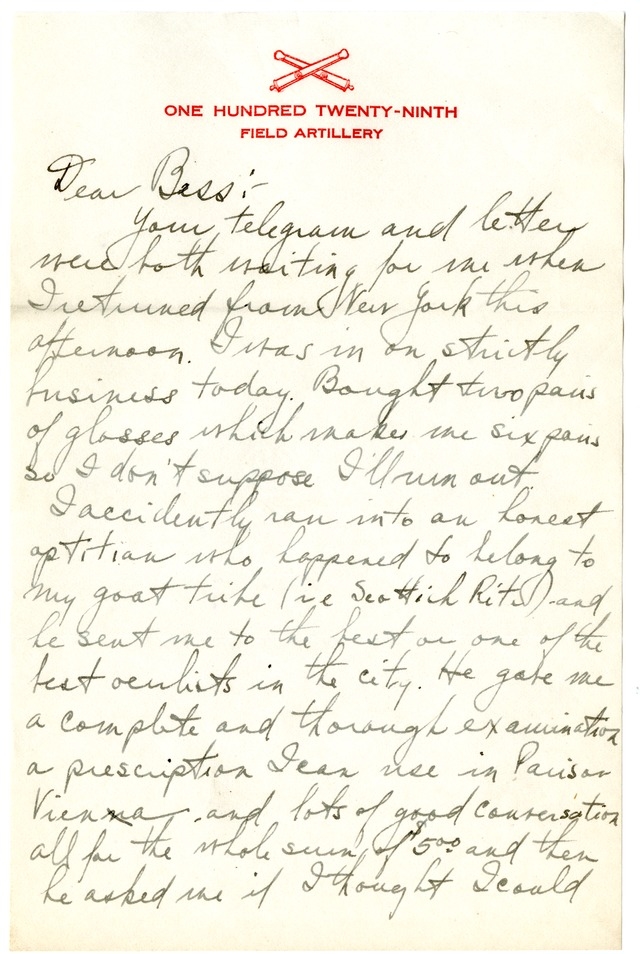 ONE HUNDRED TWENTY-NINTH
FIELD ARTILLERY
Dear Bess:-
Your telegram and letter
were both waiting for me when
I returned from New York this
afternoon. I was in on strictly
business today. Bought two pairs
of glasses which makes me six pairs
so I don't suppose I'll run out.
I accidently ran into an honest
optitian who happened to belong to
my goat tribe (i e Scottish Rite) and
he sent me to the best or one of the
best oculists in the city. He gave me
a complete and thorough examination
a prescription I can use in Paris or
Vienna and lots of good conversation
all for the whole sum of $5.00 and then
he asked me if I thought I could